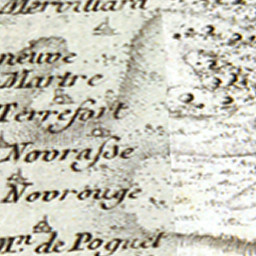 Mervillard
neuve
Martre
Terrefort
Novraſse
Novrouge
Mn. de Poquet